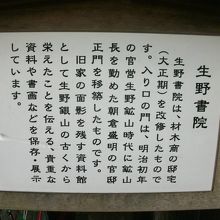 生野書院
生野書院は、材木商の邸宅
（大正期）を改修したもので
す。入り口の門は、明治初年
の官営生野鉱山時代に鉱山
長を勤めた朝倉盛明の官邸
正門を移築したものです。
旧家の面影を残す資料館
として生野銀山の古くから
栄えたことを伝える、貴重な
資料や書画などを保存・展示
しています。